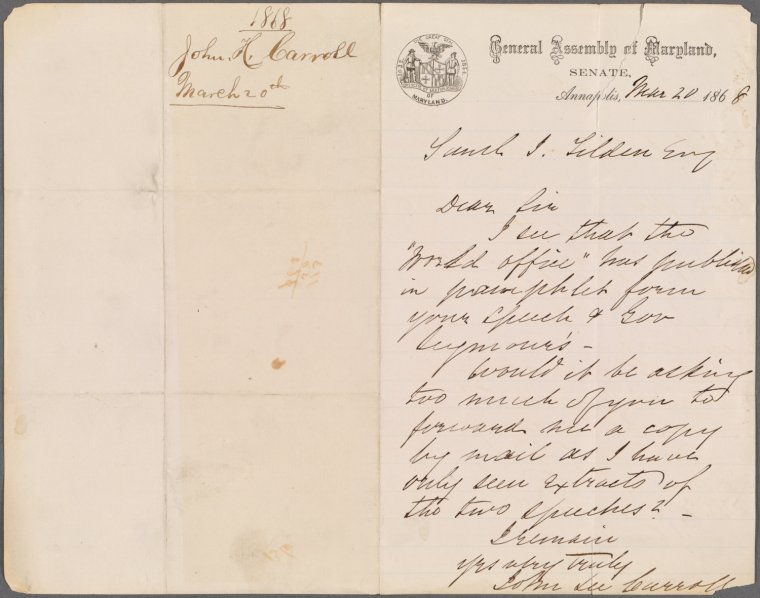 1868
John, H. Carroll
March 20th
General Assembly of Maryland,
SENATE,
Annapolis, Mar 20 1868
Saml J. Tilden Esq
Dear Sir
I see that the
"World office" has published
in pamphlet form
your speech & Gov
Seymour's –
Would it be asking
too much of you to
forward me a copy
by mail as I have
only seen extracts of
the two speeches? –
I remain
yrs very truly
John Lee Carroll